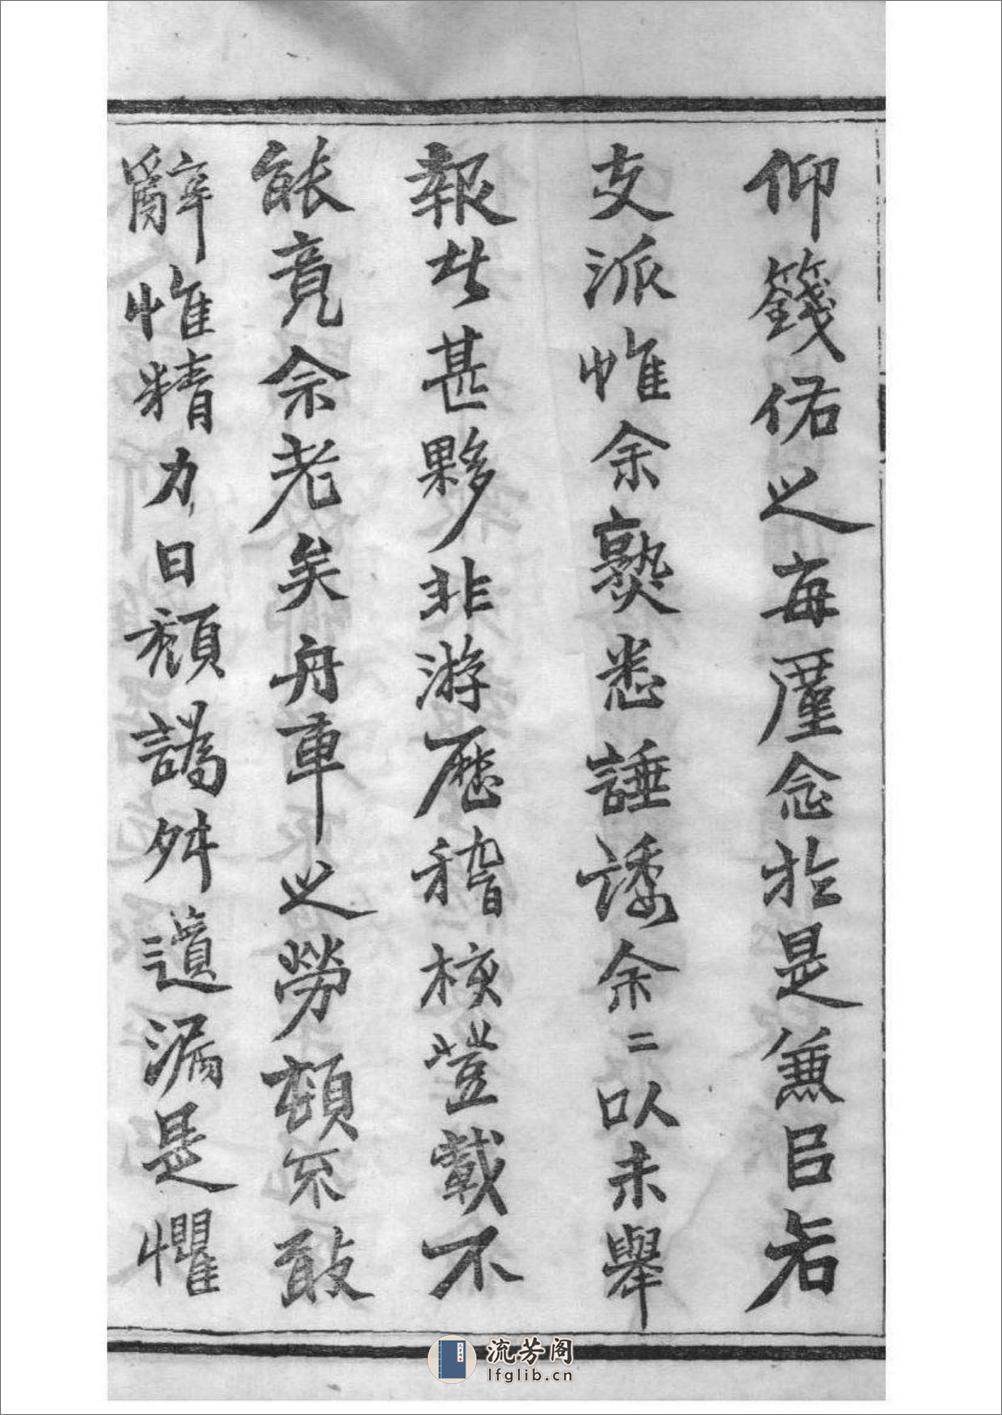 仰籛偌之每廑念於是兼吕右
支派惟余熟悉諈諉余二以未舉
報此甚夥非游歷稽核豈載不
能竟余老矣舟車之勞頓不敢
辭惟精力日頹譌舛遺漏是懼
流芳阁
lfglib.cn